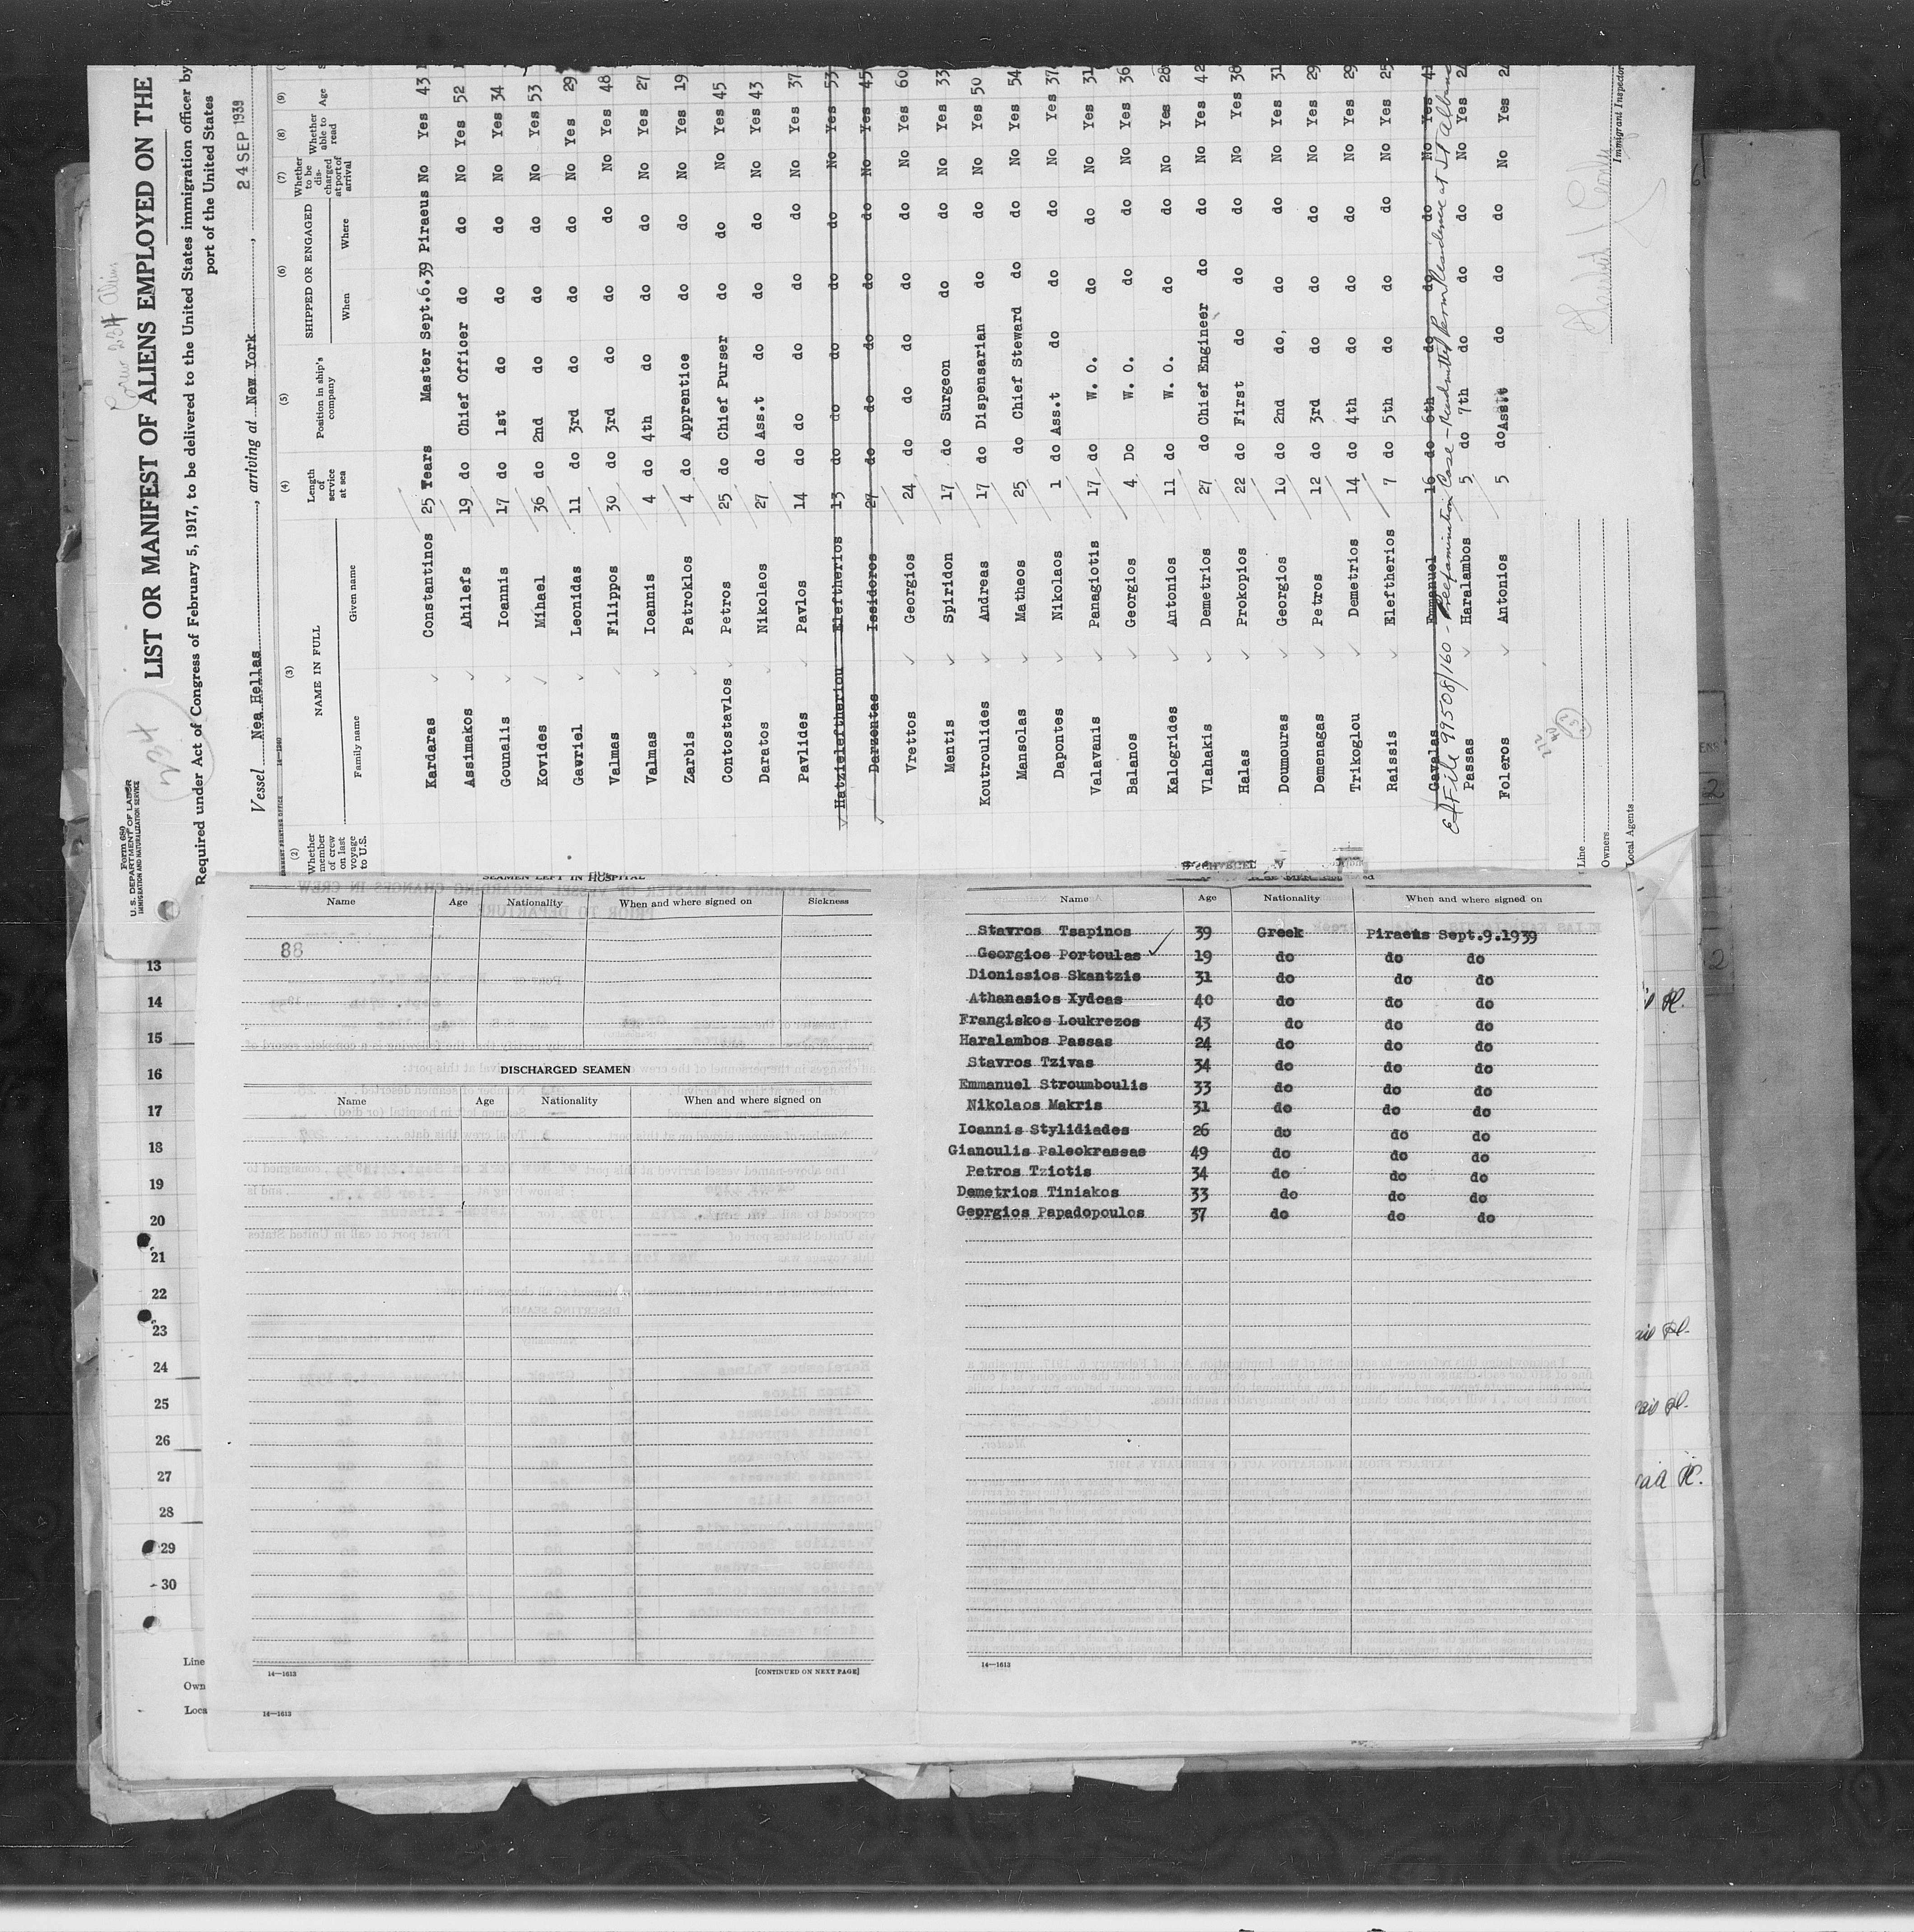 Form 680
U. S. DEPARTMENT OF LABOR
IMMIGRATION AND NATURALIZATION SERVICE
234
LIST OR MANIFEST OF ALIENS EMPLOYED ON THE
Required under Act of Congress of February 5, 1917, to be delivered to the United States immigration officer by
port of the United States
Vessel Nea Hellas, arriving at New York, 24 SEP 1939
(2) (3) (4) (5) (6) (7) (8) (9)
Whether member of crew on last voyage to U.S.
NAME IN FULL
Family name Given name
Length of service at sea
Position in ship's company
SHIPPED OR ENGAGED
When Where
Whether to be discharged at port of arrival
Whether able to read
Age
Kardaras Constantinos 25 Tears Master Sept.6.39 Piraeus No Yes 43
Assimakos Ahilefs 19 do Chief Officer do do No Yes 52
Gounalis Ioannis 17 do 1st do do do No Yes 34
Kovides Mihael 36 do 2nd do do do No Yes 53
Gavriel Leonidas 11 do 3rd do do do No Yes 29
Valmas Filippos 30 do 3rd do do do No Yes 48
Valmas Ioannis 4 do 4th do do do No Yes 27
Zarbis Patroklos 4 do Apprentice do do No Yes 19
Contostavlos Petros 25 do Chief Purser do do No Yes 45
Daratos Nikolaos 27 do Ass.t do do do No Yes 43
Pavlides Pavlos 14 do do do do do No Yes 37
Hatzieleftheriou Eleftherios 13 do do do do do No Yes 53
Darzentas Issidoros 27 do do do do do No Yes 45
Vrettos Georgios 24 do do do do do No Yes 60
Mentis Spiridon 17 do Surgeon do do No Yes 33
Koutroulides Andreas 17 do Dispensarian do do No Yes 50
Mansolas Matheos 25 do Chief Steward do do No Yes 54
Dapontes Nikolaos 1 do Ass.t do do do No Yes 37
Valavanis Panagiotis 17 do W. O. do do No Yes 31
Balanos Georgios 4 Do W. O. do do No Yes 36
Kalogrides Antonios 11 do W. O. do do No Yes 28
Vlahakis Demetrios 27 do Chief Engineer do do No Yes 42
Halas Prokopios 22 do First do do do No Yes 38
Doumouras Georgios 10 do 2nd do, do do No Yes 31
Demenagas Petros 12 do 3rd do do do No Yes 29
Trikoglou Demetrios 14 do 4th do do do No Yes 29
Raissis Eleftherios 7 do 5th do do do No Yes 25
Gavalas Emmanuel 16 do 6th do do do No Yes 41
File 99508/160 - Preexamination Case - Readmitted Perm Residence at St Albans
Passas Haralambos 5 do 7th do do do No Yes 24
Foleros Antonios 5 do Ass.t do do do No Yes 24
Line
Owners
Local Agents
Immigrant Inspector
SEAMEN LEFT IN HOSPITAL
Name Age Nationality When and where signed on Sickness
88
DISCHARGED SEAMEN
Name Age Nationality When and where signed on
14—1613
[CONTINUED ON NEXT PAGE]
14—1613
Name Age Nationality When and where signed on
Stavros Tsapinos 39 Greek Piraeus Sept.9.1939
Georgios Portoulas 19 do do do
Dionissios Skantzis 31 do do do
Athanasios Xydeas 40 do do do
Frangiskos Loukrezos 43 do do do
Haralambos Passas 24 do do do
Stavros Tzivas 34 do do do
Emmanuel Stroumboulis 33 do do do
Nikolaos Makris 31 do do do
Ioannis Stylidiades 26 do do do
Gianoulis Paleokrassas 49 do do do
Petros Tziotis 34 do do do
Demetrios Tiniakos 33 do do do
Georgios Papadopoulos 37 do do do
14—1613
13
14
15
16
17
18
19
20
21
22
23
24
25
26
27
28
29
30
Line
Own
Loca